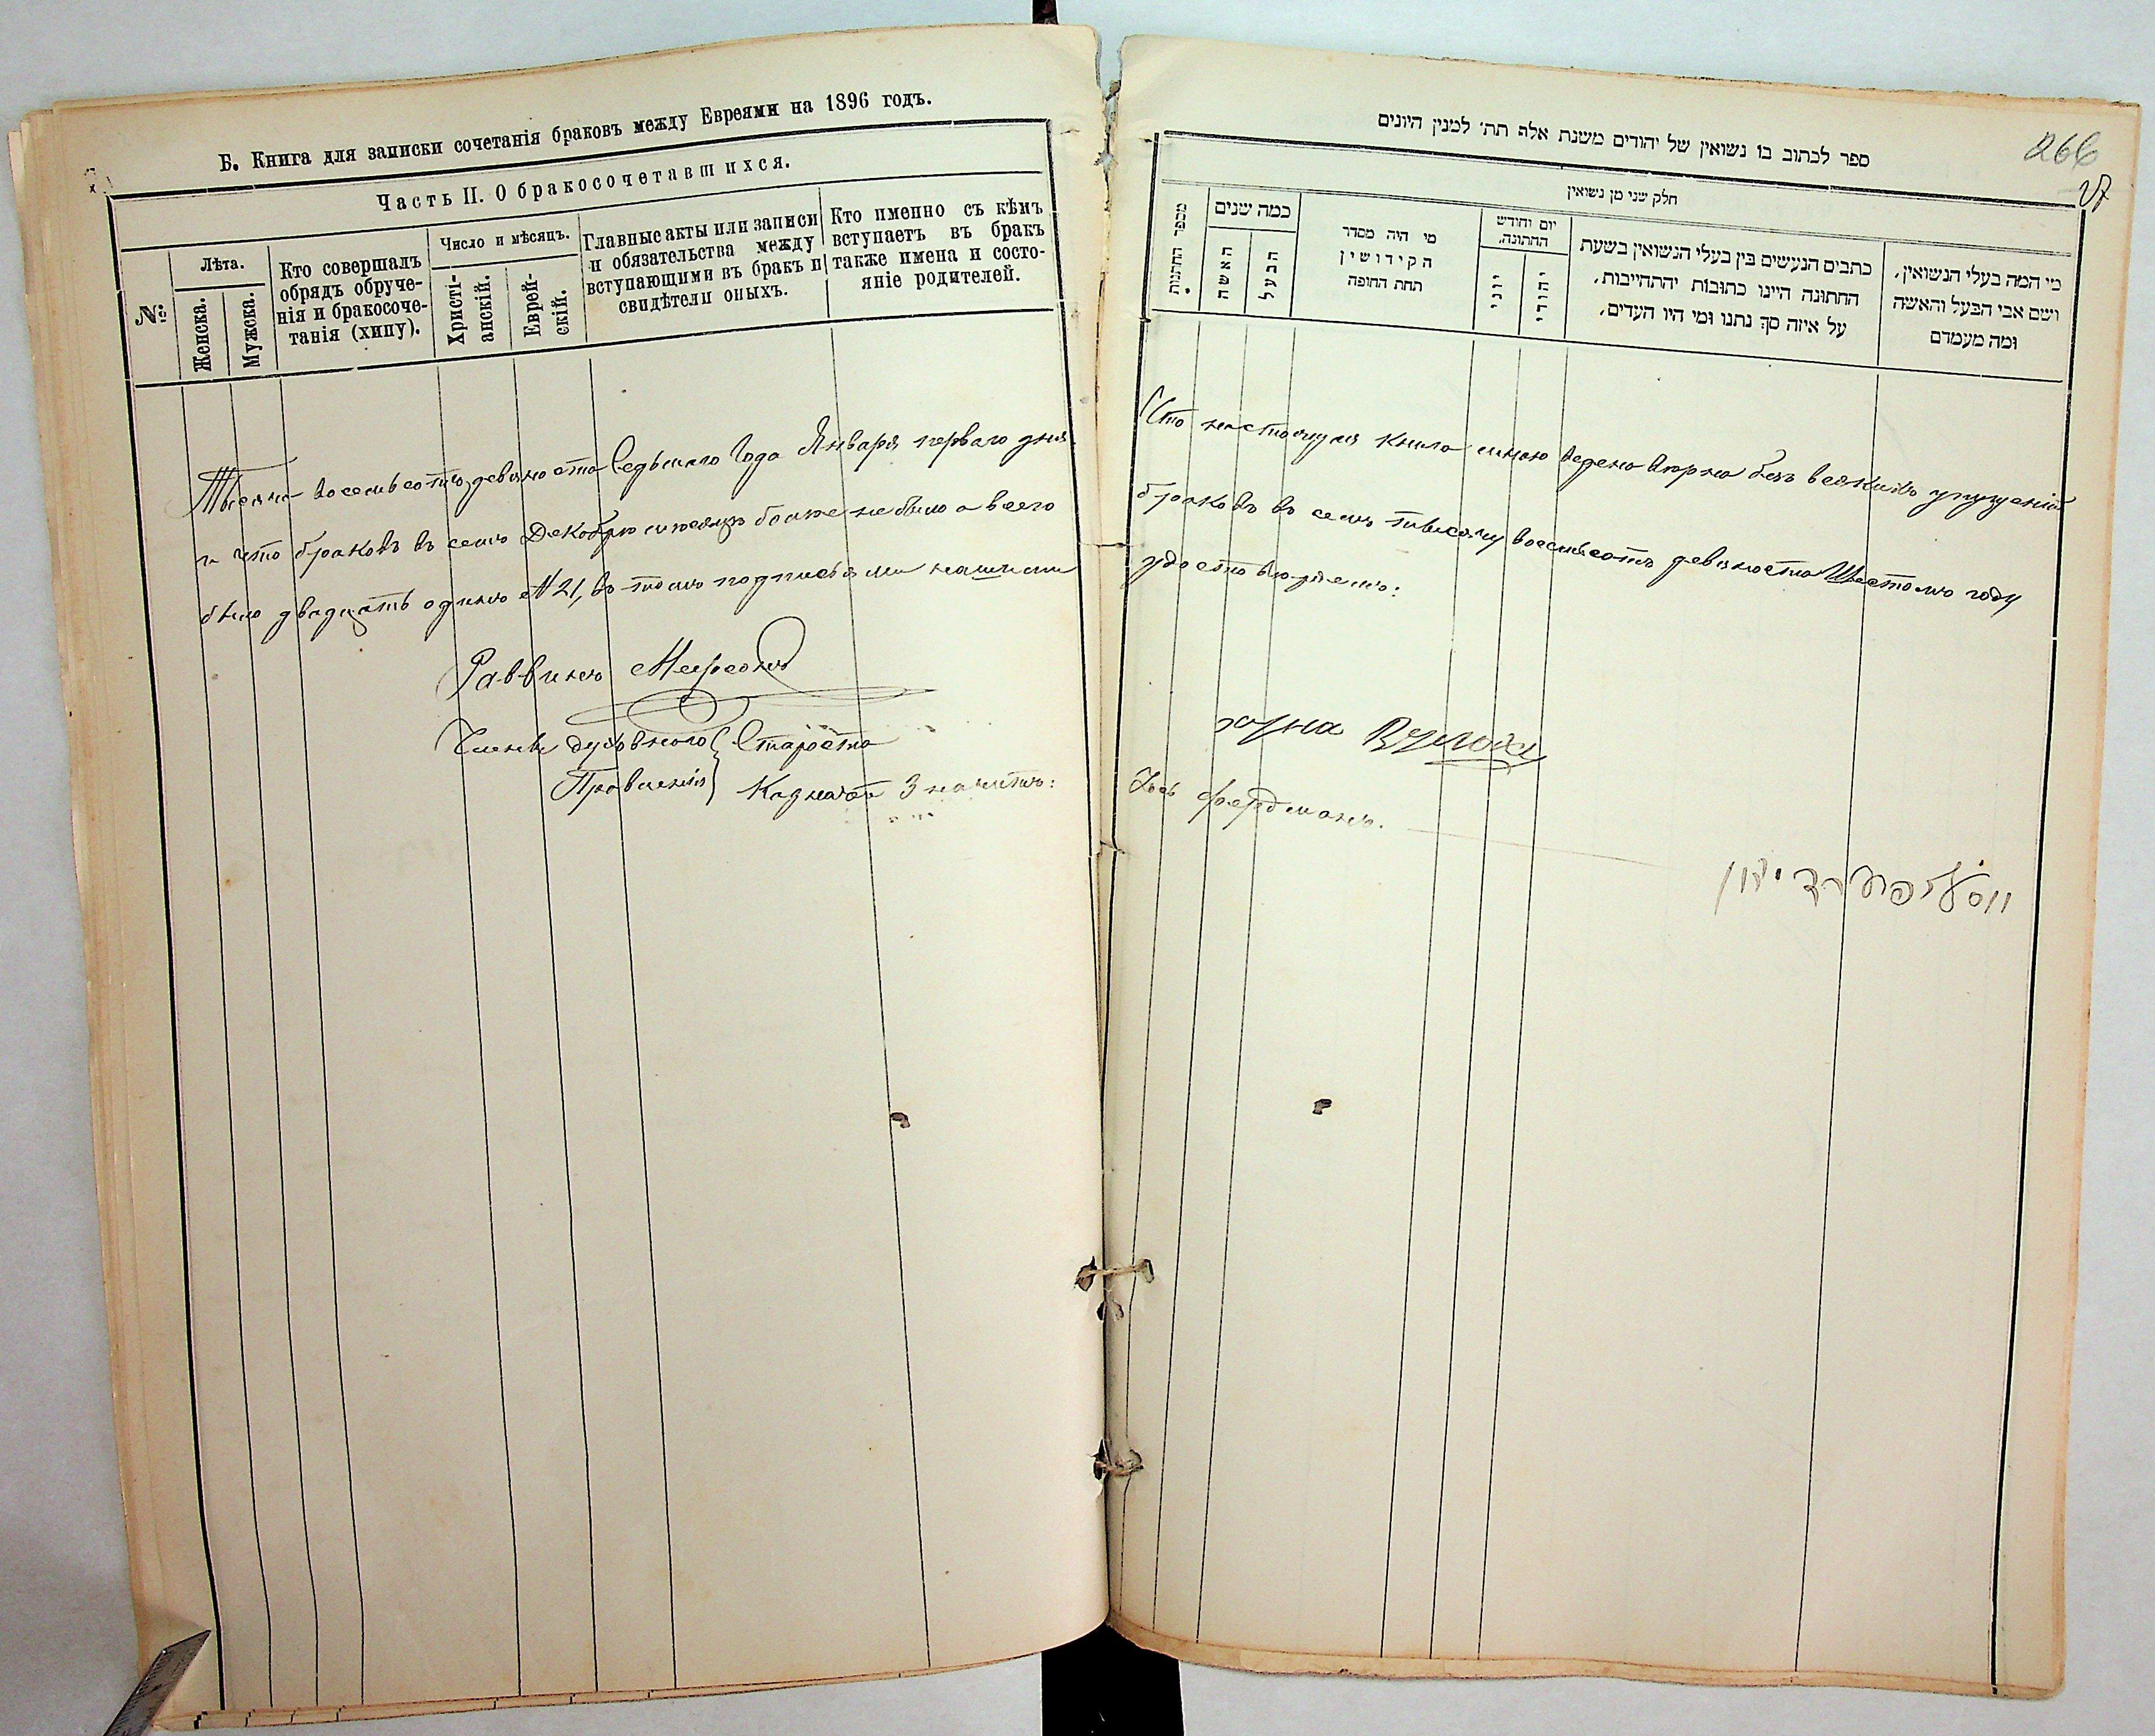 Б. Книга для записки сочетанія браковъ между Евреями на 1896 годъ.
Часть II. О бракосочетавшихся.
№
Лѣта.
Женска.
Мужска.
Кто совершалъ
обрядъ обруче-
нія и бракосоче-
танія (хипу).
Число и мѣсяцъ.
Христі-
анскій.
Еврей-
скій.
Главные акты или записи
и обязательства между
вступающими въ бракъ и
свидѣтели оныхъ.
Кто именно съ кѣмъ
вступаетъ въ бракъ
также имена и состо-
яніе родителей.
Тысяча восемьсотъ девяноста Седьмаго Года Января перваго дня
и что браковъ въ семъ Декабрѣ мѣсяцѣ болѣе не было а всего
было двадцать одинъ №21, въ томъ подписями нашими
Раввинъ
Члены духовнаго Староста
Правленія Казначей Значитъ:
266
27
ספר לכתוב בו נשואין של יהודים משנת אלף תת׳ למנין היונים
חלק שני מן נשואין
מספר החתונות
כמה שנים
האשה
הבעל
מי היה מסדר
הקידושין
תחת החופה
יום וחודש
החתונה.
יוני
יהודי
כתבים הנעשים בין בעלי הנשואין בשעת
החתונה היינו כתובות יהתחייבות,
על איזה סך נתנו ומי היו העדים,
מי המה בעלי הנשואין,
ושם אבי הבעל והאשה
ומה מעמדם
Что настоящая книга мною ведена вѣрно безъ всякихъ упущеній
браковъ въ семъ тысячу восемьсотъ девяноста Шестомъ году
удостовѣряемъ:
Іось Фердманъ.